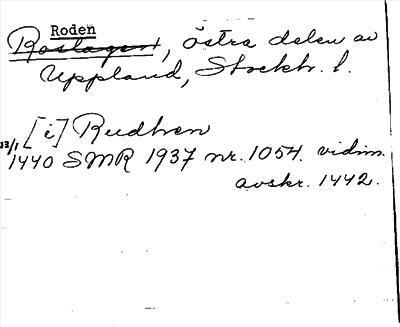 Roden
Roslagen, östra delen av
Uppland, Stockh. l.
[i] Rudhen
13/1 1440 SMR 1937 nr. 1054. vidim.
avskr. 1442.